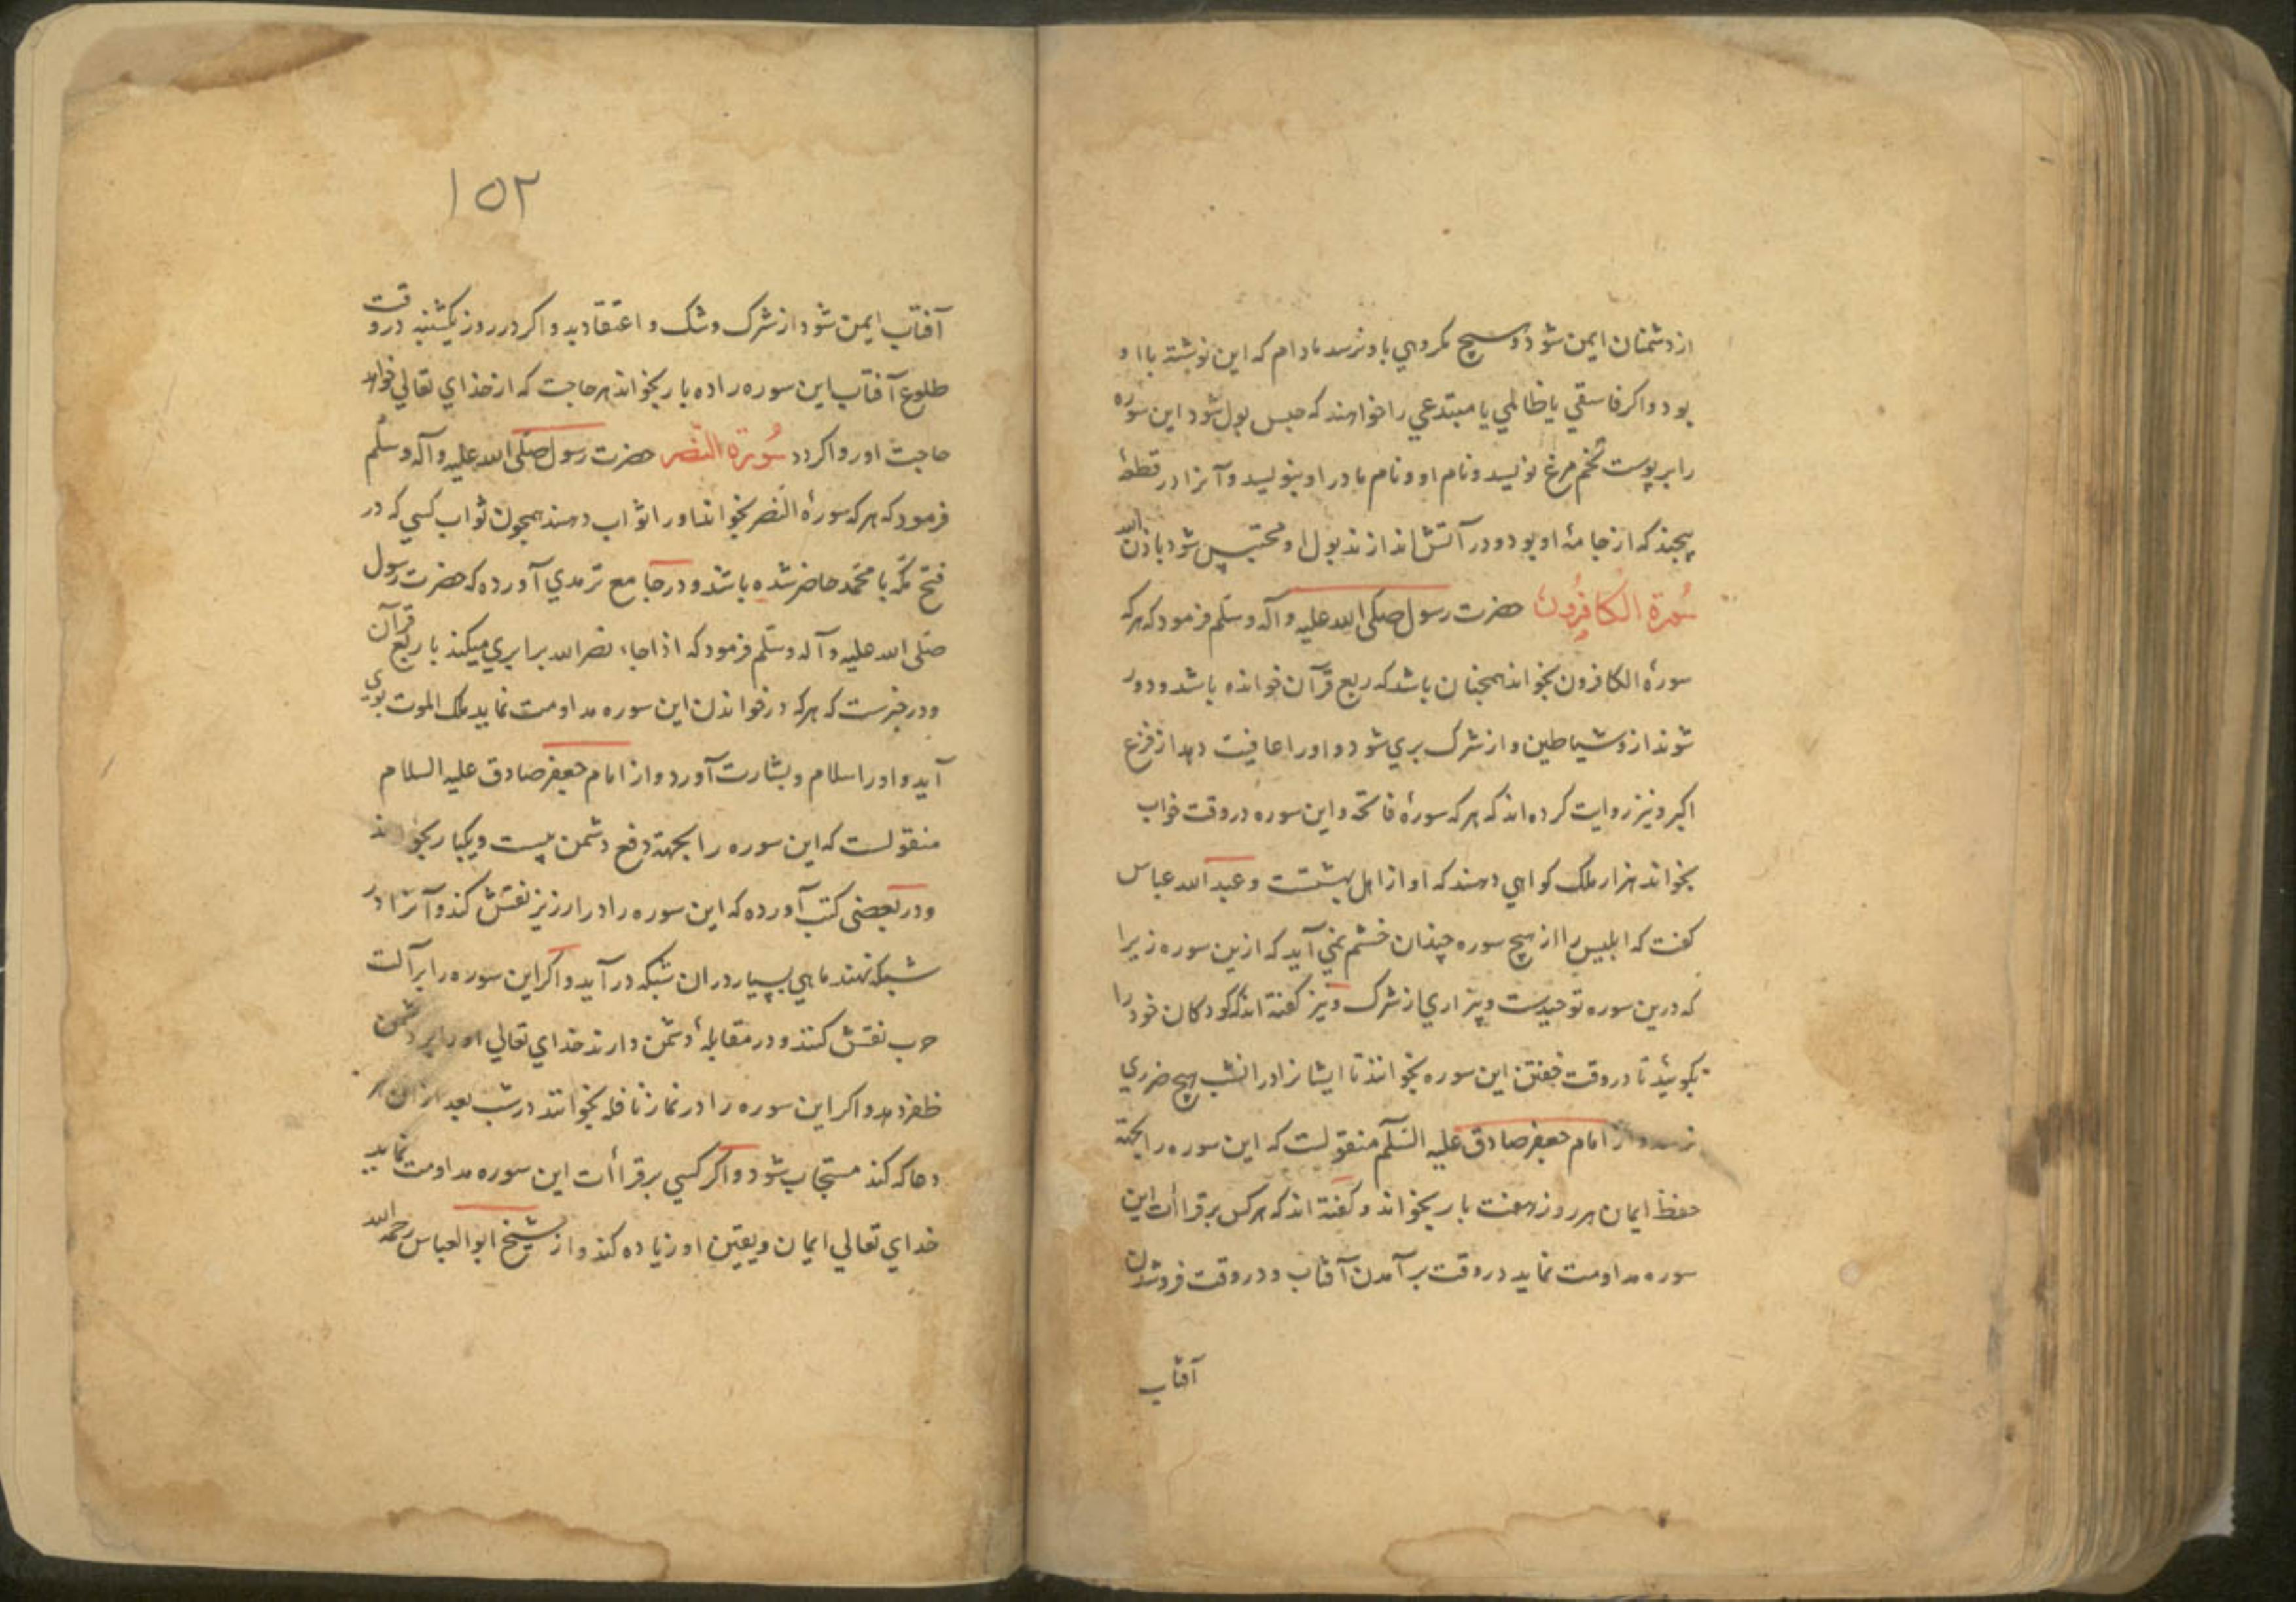 از دشمنان ایمن شود و هیچ مکروهي باو نرسد مادام که این نوشته با او
بود و اکر فاسقي یا ظالمي یا مبتدعي را خواهند که حبس بول شود این سوره
را بر پوست تخم مرغ نویسد و نام او و نام مادر او بنویسد و آنرا در قطعهٔ
پیچند که از جامهٔ او بود و در آتش اندازند بول او محتبس شود باذن الله
سُورة الکافِرُون حضرت رسول صلی الله علیه و آله وسلم فرمود که هر که
سورهٔ الکافرون بخواند همچنان باشد که ربع قرآن خوانده باشد و دور
شوند ازو شیاطین و از شرک بري شود و او را عافیت دهد از فزع
اکبر و نیز روایت کرده اند که هر که سورهٔ فاتحه و این سوره در وقت خواب
بخواند هزار ملک کواهي دهند که او از اهل بهشتست و عبد الله عباس
کفت که ابلیس را از هیچ سوره چندان خشم نمي آید که ازین سوره زیرا
که درین سوره توحیدست و بیزاري از شرک و نیز کفته اند که کودکان خود را
بکوئید تا در وقت خفتن این سوره بخوانند تا ایشانرا در انشب هیچ ضرري
نرسد و از امام جعفر صادق علیه السلم منقولست که این سوره را بجهة
حفظ ایمان هر روز هفت بار بخواند و کفته اند که هر کس بر قراأت این
سوره مداومت نماید در وقت بر آمدن آفتاب و در وقت فروشدن
آفتاب
۱۵۲
آفتاب ایمن شود از شرک و شک و اعتقاد بد و اکر در روز یکشنبه در وقت
طلوع آفتاب این سوره را ده بار بخواند هر حاجت که از خداي تعالي خواهد
حاجت او روا کردد سُورة النّصر حضرت رسول صلی الله علیه و آله وسلم
فرمود که هر که سورهٔ النصر بخواند او را ثواب دهند همچون ثواب کسي که در
فتح مکه با محمد حاضر شده باشد و در جامع ترمدي آورده که حضرت رسول
صلی الله علیه و آله وسلم فرمود که اذا جاء نصر الله برابري میکند با ربع قرآن
و در خبرست که هر که در خواندن این سوره مداومت نماید ملک الموت بوي
آید و او را سلام و بشارت آورد و از امام جعفر صادق علیه السلام
منقولست که این سوره را بجهة دفع دشمن بیست و یکبار بخواند
و در بعضی کتب آورده که این سوره را در ارزیز نقش کند و آنرا در
شبکه نهند ماهي بسیار در ان شبکه در آید و اکر این سوره را بر آلت
حرب نقش کنند و در مقابلهٔ دشمن دارند خداي تعالي او را بر دشمن
ظفر دهد و اکر این سوره را در نماز نافله بخوانند در شب بعد از ان هر
دعا که کند مستجاب شود و اکر کسي بر قراأت این سوره مداومت نماید
خداي تعالي ایمان و یقین او زیاده کند و از شیخ ابو العباس رحمه الله